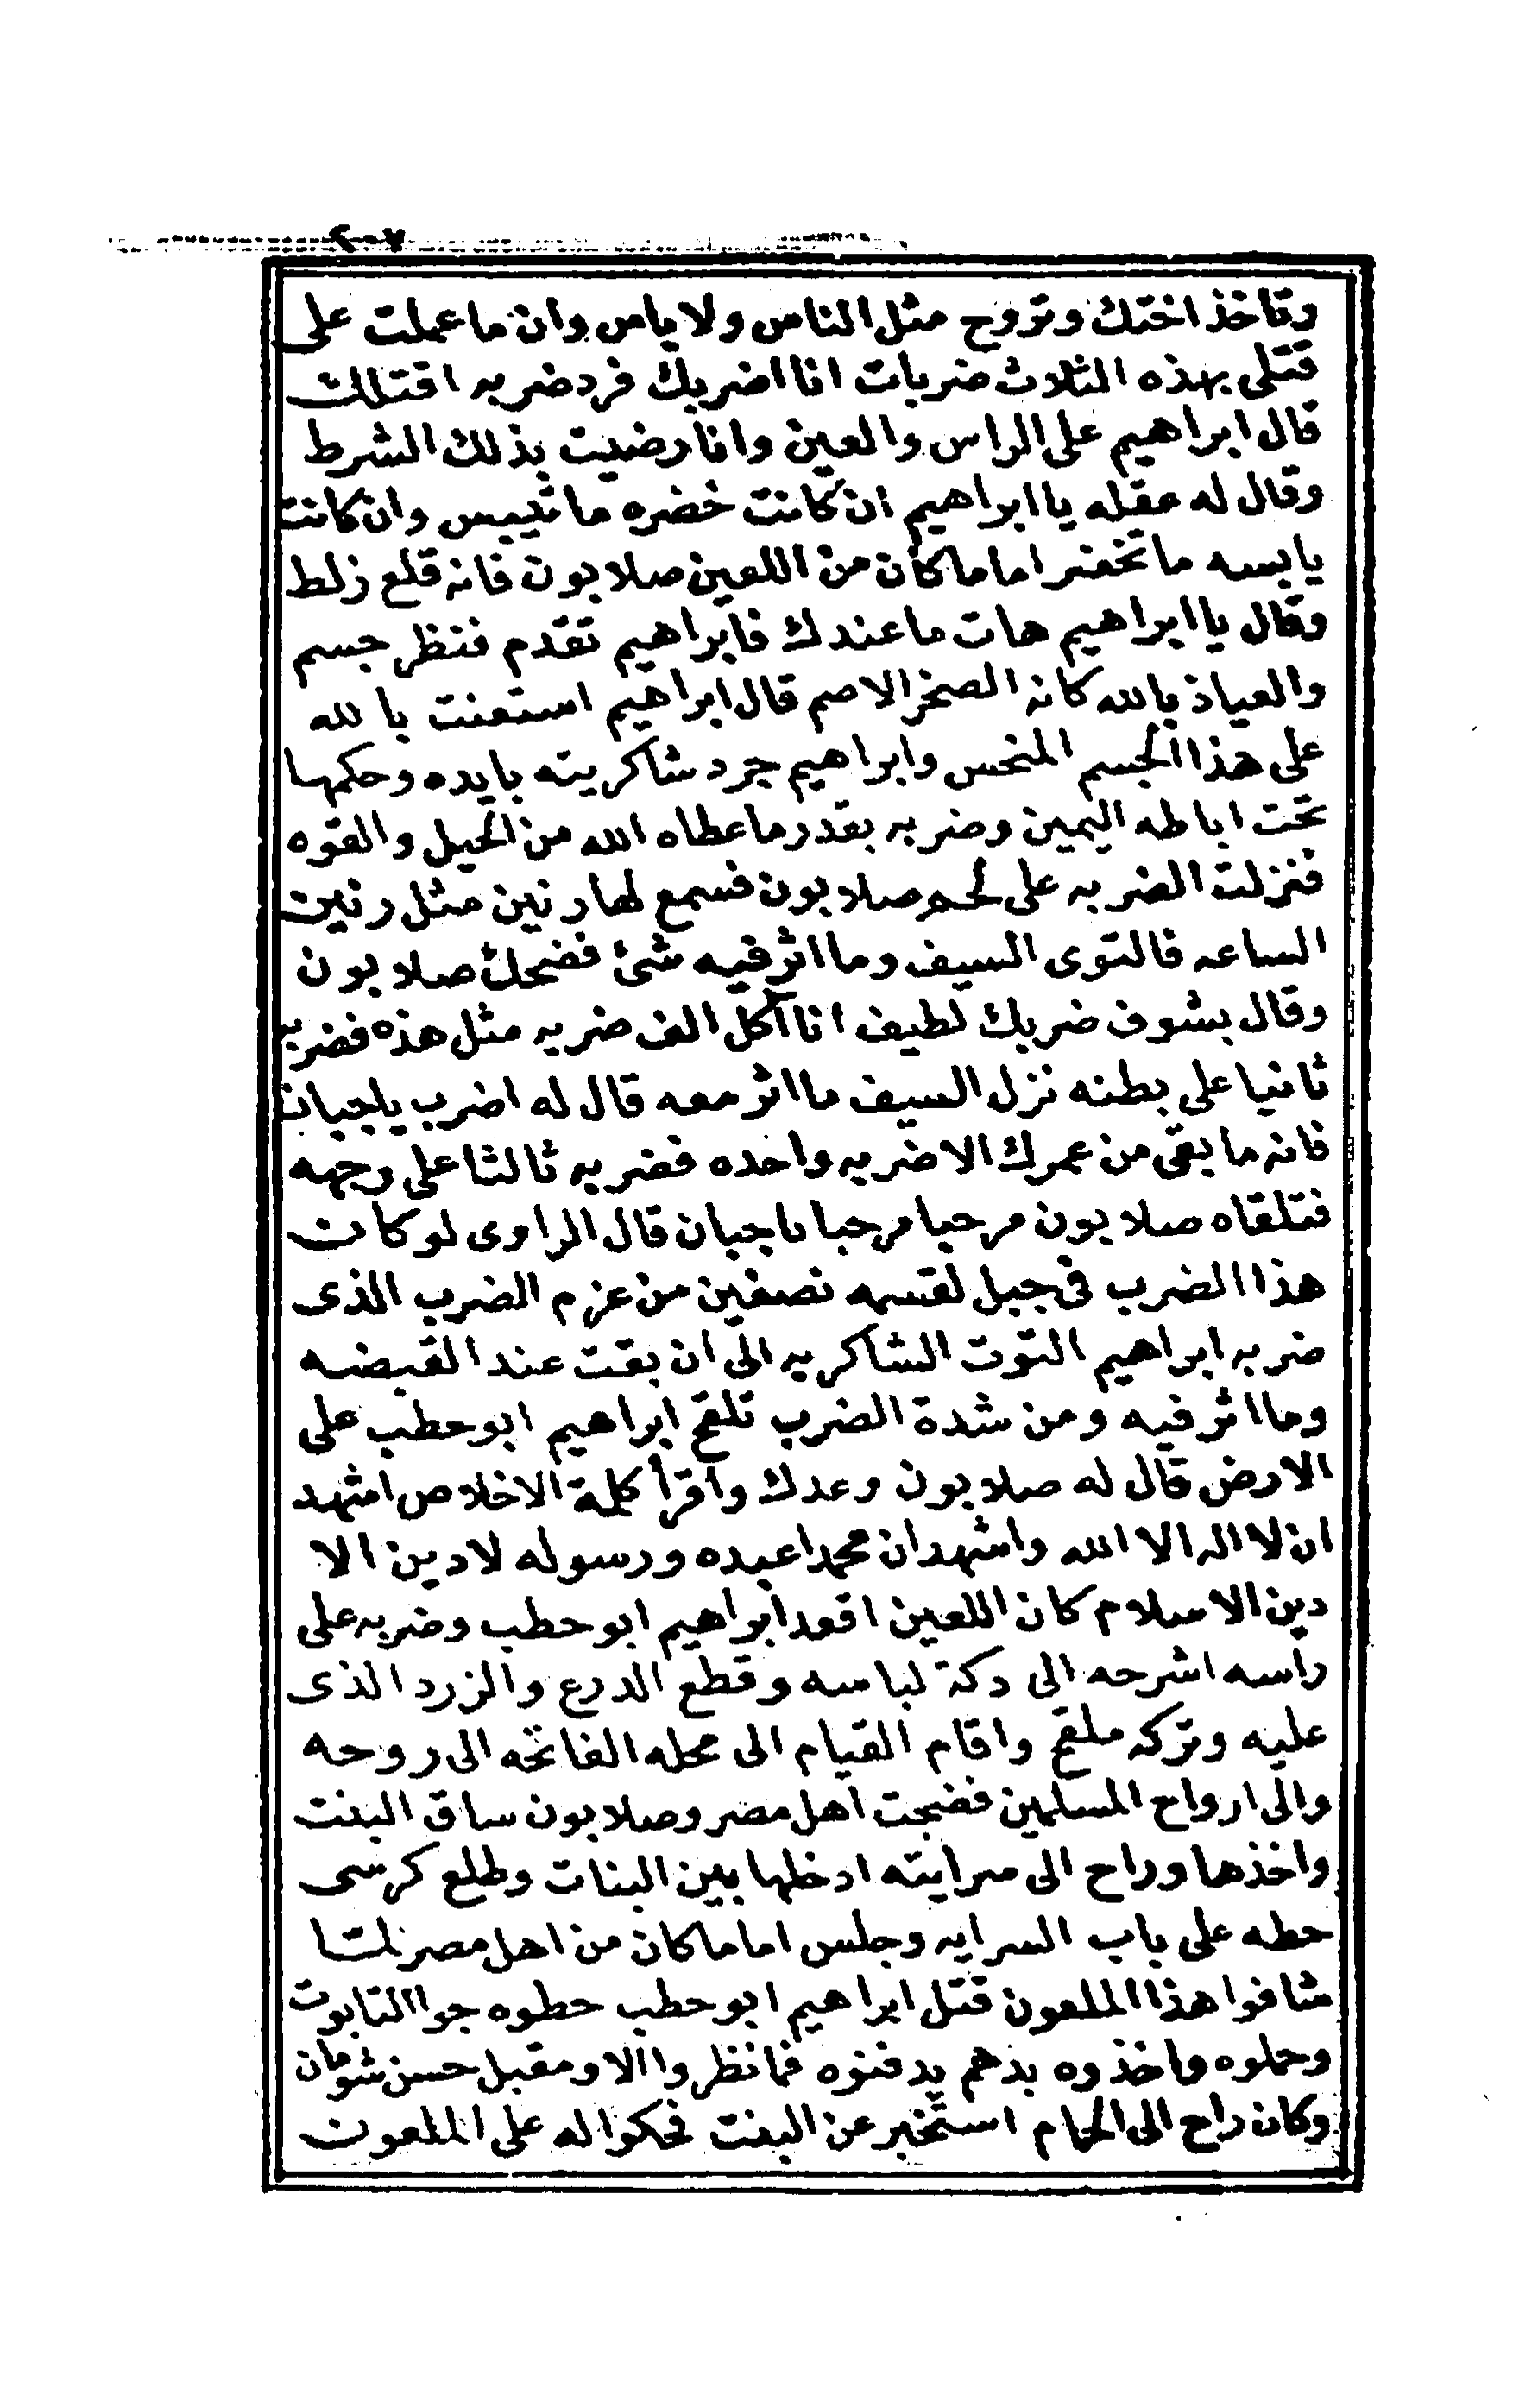 ٢٠٧
وتاخذ اختك وتروح مثل الناس ولا باس وان ما عملت على
قتلى بهذه الثلاث ضربات انا اضربك فرد ضربه اقتلك
قال ابراهيم على الراس والعين وانا رضيت بذلك الشرط
وقال له عقله يا ابراهيم ان كانت خضره ما تيبس وان كانت
يابسه ما تخضر اما ما كان من اللعين صلابون فانه قلع زلط
وقال يا ابراهيم هات ما عندك فابراهيم تقدم فنظر جسم
والعياذ بالله كانه الصخر الاصم قال ابراهيم استعنت بالله
على هذا الجسم المنحس وابراهيم جرد شاكريته بايده وحكمها
تحت اباطه اليمين وضربه بقدر ما عطاه الله من الحيل والقوه
فنزلت الضربه على لحم صلابون فسمع لها رنين مثل رنين
الساعه فالتوى السيف وما اثر فيه شئ فضحك صلابون
وقال بشوف ضربك لطيف انا آكل الف ضربه مثل هذه فضربه
ثانيا على بطنه نزل السيف ما اثر معه قال له اضرب يا جبان
فانه ما بقى من عمرك الا ضربه واحده فضربه ثالثا على وجهه
فتلقاه صلابون مرحبا مرحبا يا جبان قال الراوى لو كان
هذا الضرب فى جبل لقسمه نصفين من عزم الضرب الذى
ضربه ابراهيم التوت الشاكريه الى ان بقت عند القبضه
وما اثر فيه ومن شدة الضرب تلقح ابراهيم ابو حطب على
الارض قال له صلابون وعدك واقرأ كلمة الاخلاص اشهد
ان لا اله الا الله واشهد ان محمدا عبده ورسوله لا دين الا
دين الاسلام كان اللعين اقعد ابراهيم ابو حطب وضربه على
راسه اشرحه الى دكة لباسه وقطع الدرع والزرد الذى
عليه وتركه ملقح واقام القيام الى محله الفاتحه الى روحه
والى ارواح المسلمين فضجت اهل مصر وصلابون ساق البنت
واخذها وراح الى سرايته ادخلها بين البنات وطلع كرسى
حطه على باب السرايه وجلس اما ما كان من اهل مصر لما
شافوا هذا الملعون قتل ابراهيم ابو حطب حطوه جوا التابوت
وحملوه واخذوه بدهم يدفنوه فما نظروا الا ومقبل حسن شومان
وكان راح الى الحمام استخبر عن البنت فحكوا له على الملعون